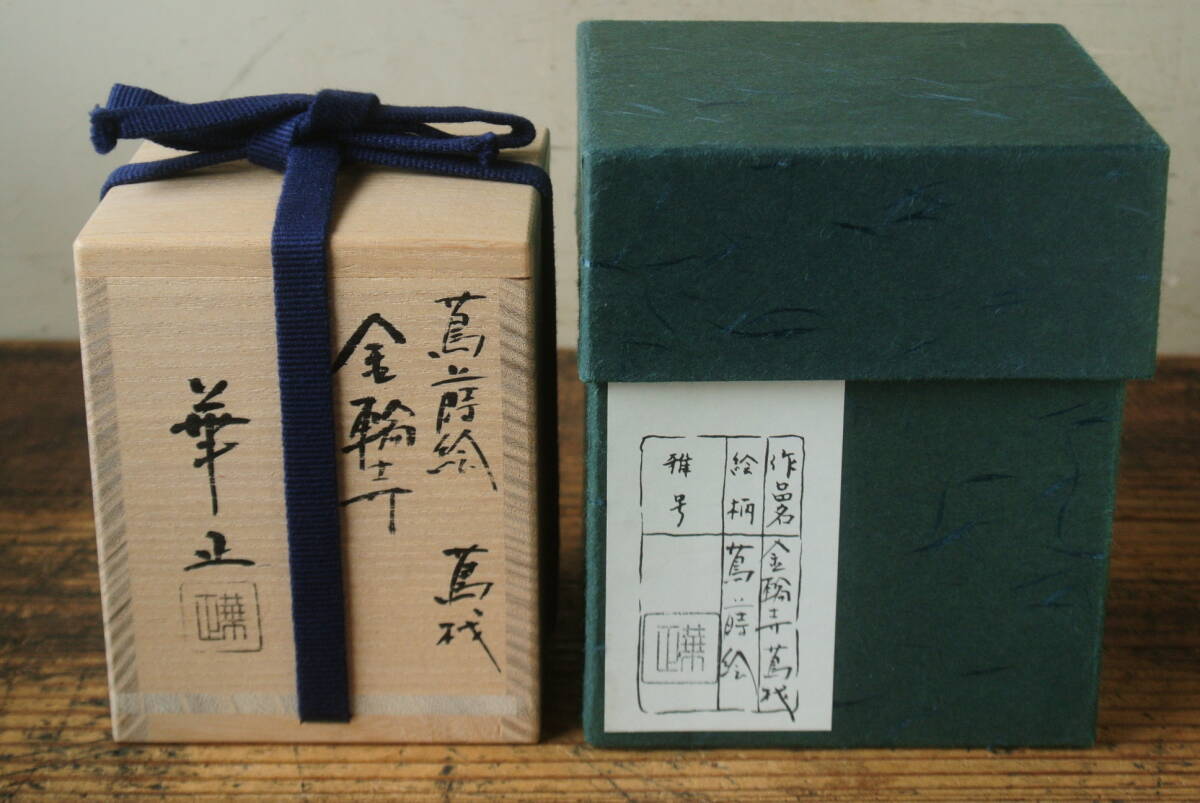 蔦蒔絵 蔦伐
金輪寺
華正
作品名 金輪寺 蔦伐
絵柄 蔦蒔絵
雅号